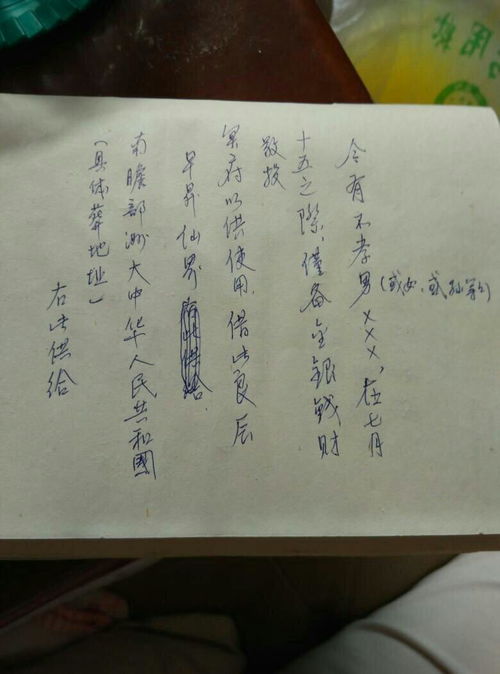 今有不孝男×××,在七月
(或女、或孙等)
十五之际,僅备金銀钱财
敬投
冥府以供使用,借此良辰
早昇仙界
南瞻部洲大中华人民共和國
(具体葬地址)
右此供给